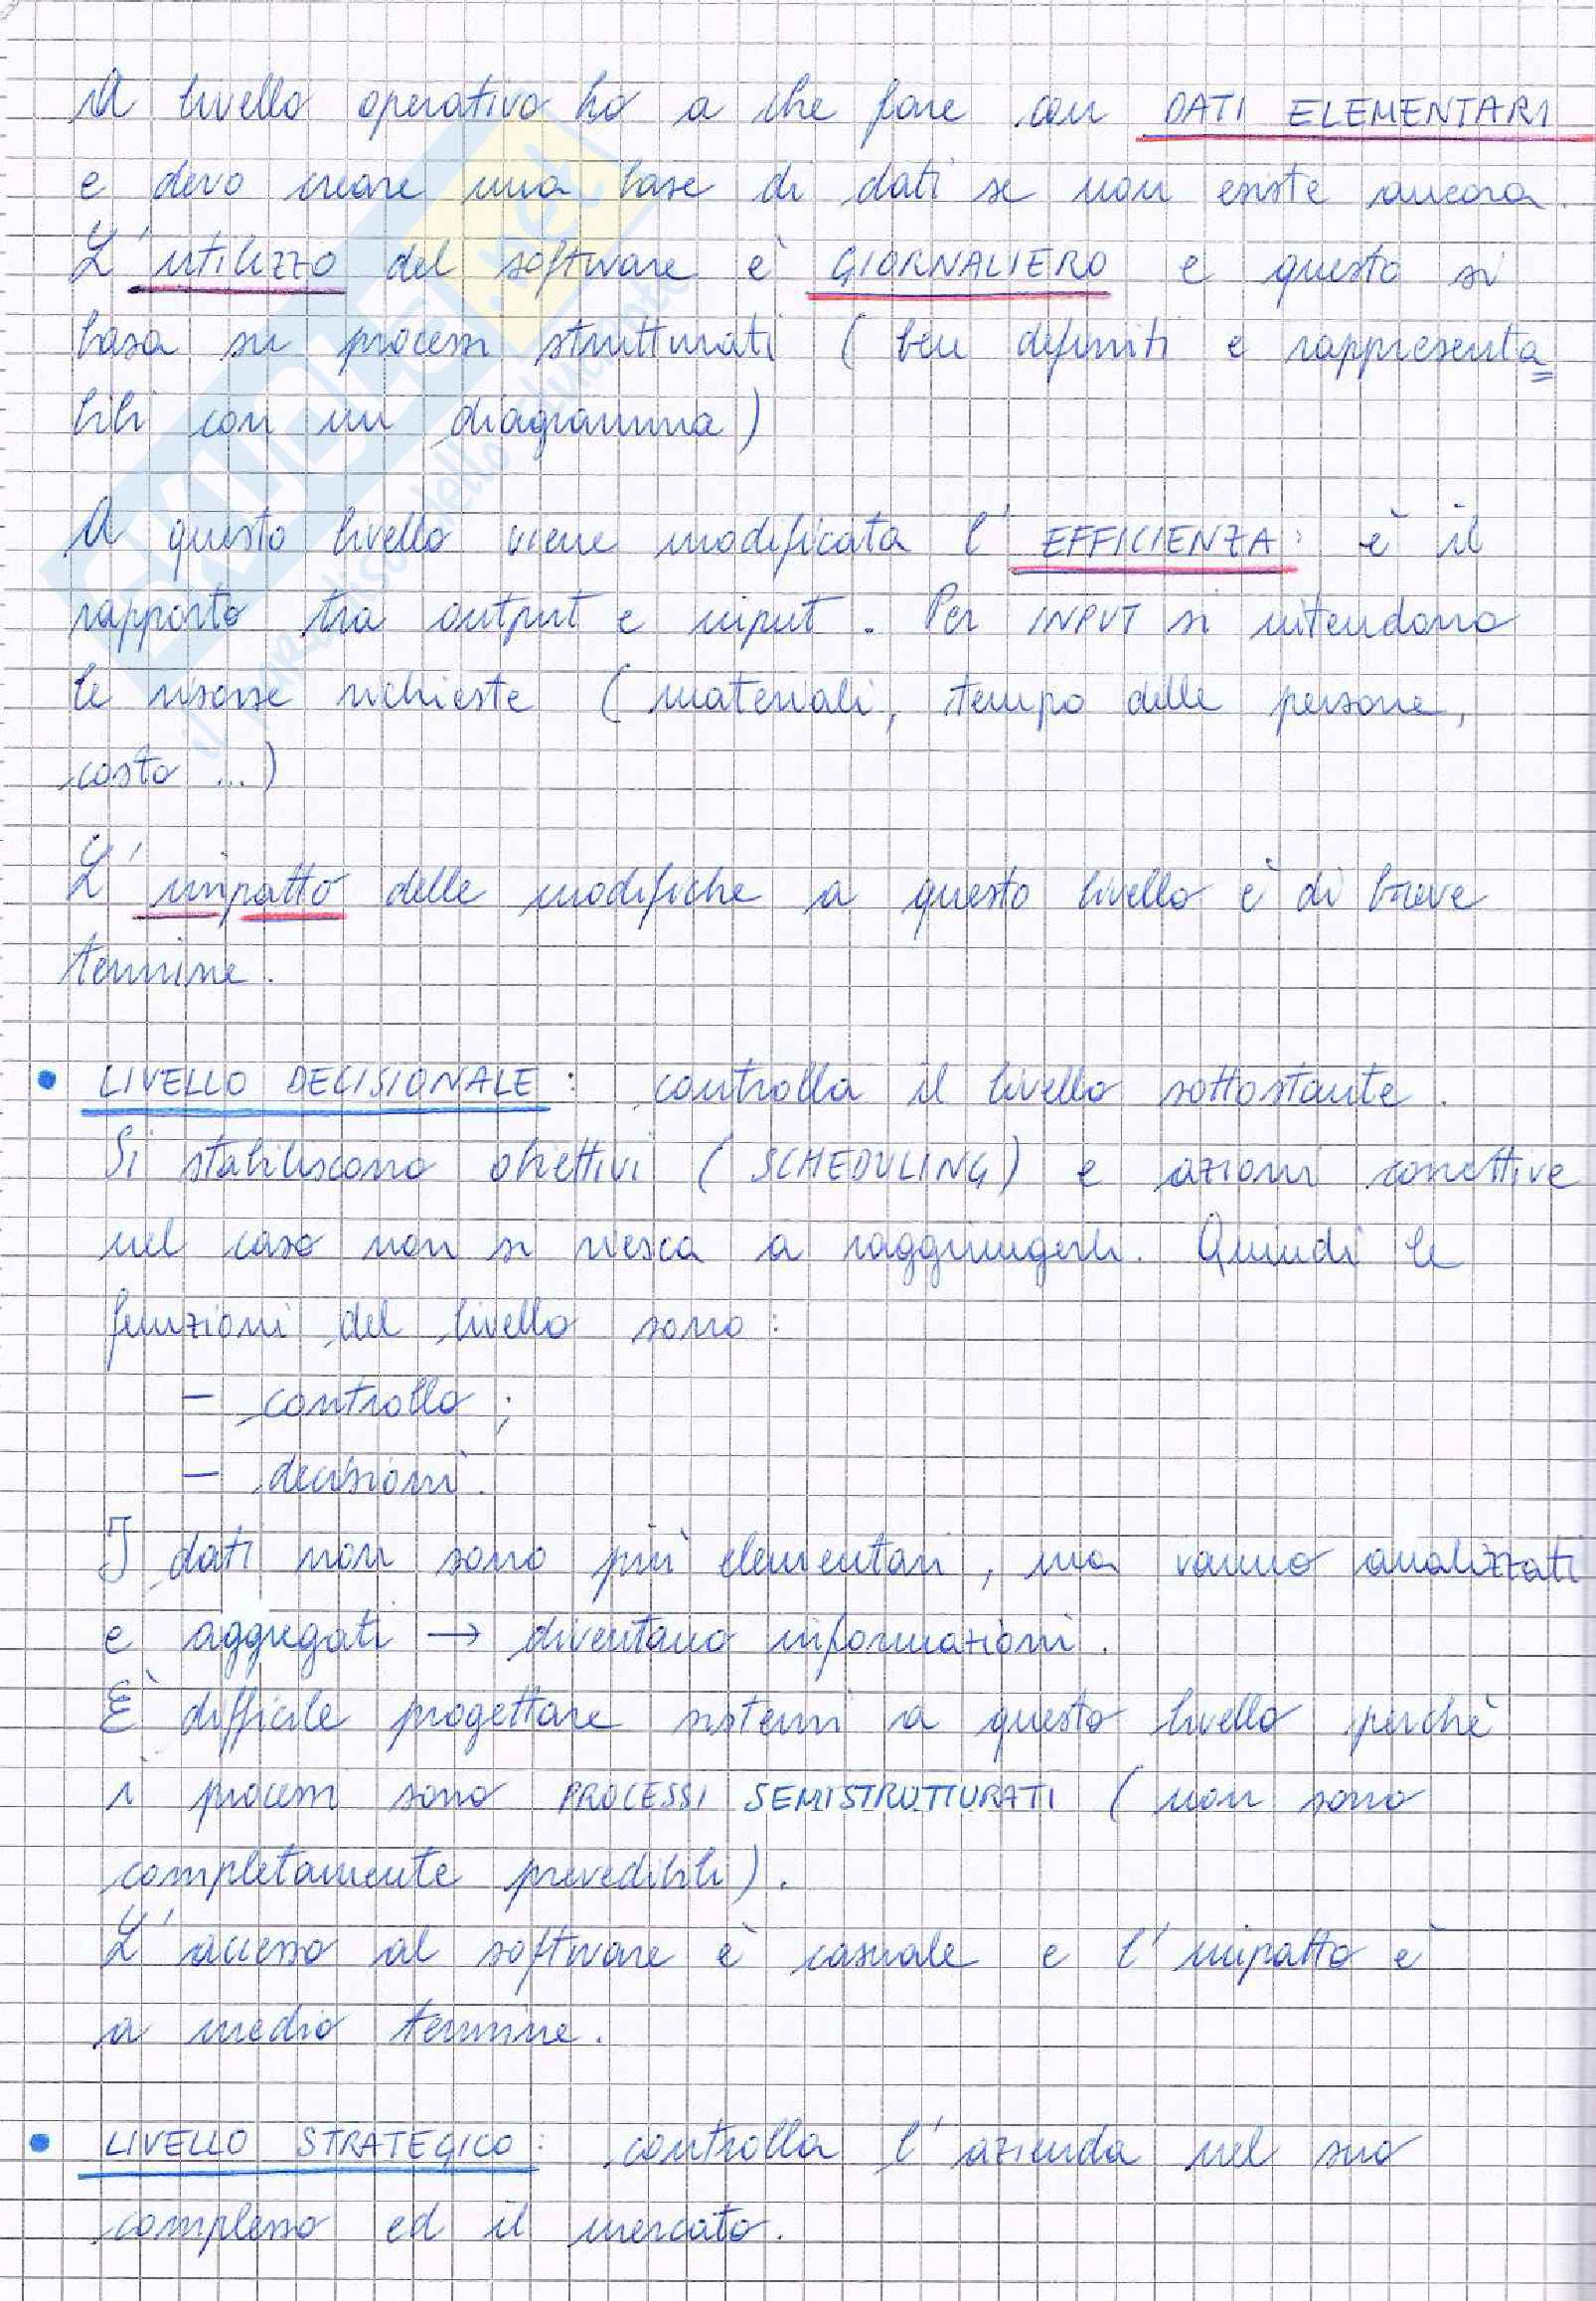 A livello operativo ho a che fare con DATI ELEMENTARI
e devo creare una base di dati se non esiste ancora.
L'utilizzo del software è GIORNALIERO e questo si
basa su processi strutturati (ben definiti e rappresenta
bili con un diagramma)
A questo livello viene modificata l'EFFICIENZA: è il
rapporto tra output e input. Per INPUT si intendono
le risorse richieste (materiali, tempo delle persone,
costo ...)
L'impatto delle modifiche a questo livello è di breve
termine.
• LIVELLO DECISIONALE: controlla il livello sottostante.
Si stabiliscono obiettivi (SCHEDULING) e azioni correttive
nel caso non si riesca a raggiungerli. Quindi le
funzioni del livello sono:
- controllo;
- decisioni.
I dati non sono più elementari, ma vanno analizzati
e aggregati → diventano informazioni.
È difficile progettare sistemi a questo livello perchè
i processi sono PROCESSI SEMISTRUTTURATI (non sono
completamente prevedibili).
L'accesso al software è casuale e l'impatto è
a medio termine.
• LIVELLO STRATEGICO: controlla l'azienda nel suo
complesso ed il mercato.